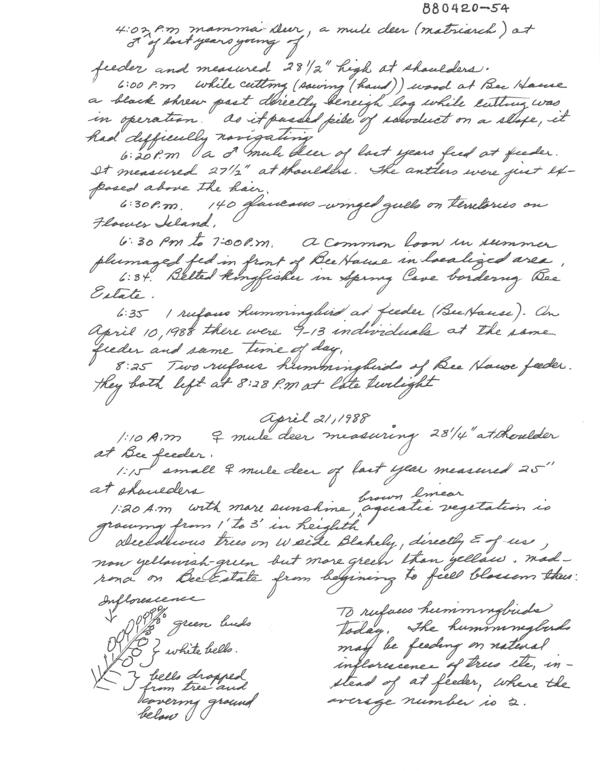 880420-54
4:02 P.m mamma Deer, a mule deer (matriarch) at
♂ of last years young of
feeder and measured 28 1/2" high at shoulders.
6:00 P.m while cutting (sawing (hand)) wood at Bee House
a black shrew past directly beneigh log while cutting was
in operation. As it passed pile of sawdust on a slope, it
had difficulty navigating
6:20 P.M. a ♂ mule deer of last years, feed at feeder.
It measured 27 1/2" at shoulders. The antlers were just ex-
posed above the hair.
6:30 P.m. 140 glaucous-winged gulls on territories on
Flower Island.
6:30 Pm to 7:00 P.m. A Common loon in summer
plumaged fed in front of Bee House in localized area,
6:34. Belted Kingfisher in Spring Cove bordering Bee
Estate.
6:35 1 rufous hummingbird at feeder (Bee House). On
April 10, 1988 there were 9-13 individuals at the same
feeder and same time of day.
8:25 Two rufous hummingbirds of Bee House feeder.
they both left at 8:28 P.M at late twilight
April 21, 1988
1:10 A.m ♀ mule deer measuring 28 1/4" at shoulder
at Bee feeder.
1:15 small ♀ mule deer of last year measured 25"
at shoulders
1:20 A.m with more sunshine, brown linear aquatic vegetation is
growing from 1' to 3' in heighth
Deciduous trees on W side Blakely, directly E of us,
now yellowish-green but more green than yellow. mad-
rona on Bee Estate from begining to full blossom thus:
Inflorescence
green buds
white bells.
bells dropped
from tree and
covering ground
below
To rufous hummingbirds
today. The hummingbirds
may be feeding on natural
inflorescence of trees etc, in-
stead of at feeder, where the
average number is 2.